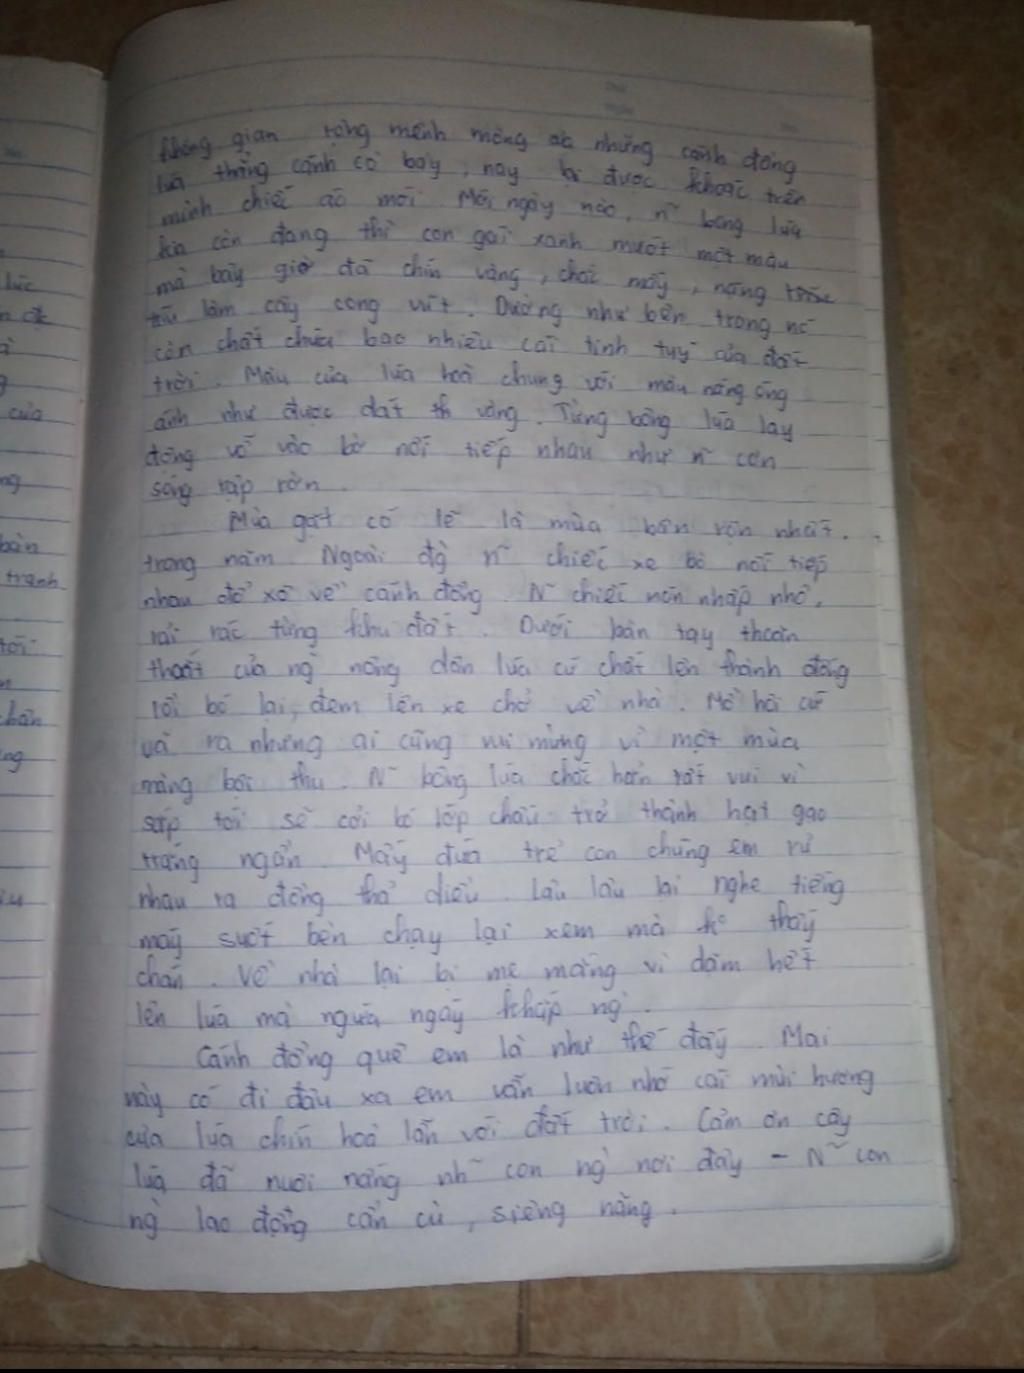 không gian rộng mênh mông của những cánh đồng
lúa thẳng cánh cò bay, nay lại được khoác trên
mình chiếc áo mới. Mới ngày nào, n~ bông lúa
kia còn đang thì con gái xanh mướt một màu
mà bây giờ đã chín vàng, chắc mẩy, nặng
làm cây cong vút. Dường như bên trong nó
còn chất chứa bao nhiêu cái tinh tuý của đất
trời. Màu của lúa hoà chung với màu nắng óng
ánh như được dát vàng. Từng bông lúa lay
động vỗ vào bờ nối tiếp nhau như n~ cơn
sóng rập rờn.
Mùa gặt có lẽ là mùa bận rộn nhất
trong năm. Ngoài n~ chiếc xe bò nối tiếp
nhau đổ xô về cánh đồng. N~ chiếc nón nhấp nhô,
rải rác từng khu đất. Dưới bàn tay thoăn
thoắt của ng` nông dân lúa cứ chất lên thành đống
rồi bó lại, đem lên xe chở về nhà. Mồ hôi cứ
vã ra nhưng ai cũng vui mừng vì một mùa
màng bội thu. N~ bông lúa chắc hẳn rất vui vì
sắp tới sẽ cởi bỏ lớp chấu trở thành hạt gạo
trắng ngần. Mấy đứa trẻ con chúng em rủ
nhau ra đồng thả diều. Lâu lâu lại nghe tiếng
máy suốt bèn chạy lại xem mà k° thấy
chán. Về nhà lại bị mẹ mắng vì dặm hết
lên lúa mà ngứa ngáy khắp ng`.
Cánh đồng quê em là như thế đấy. Mai
này có đi đâu xa em vẫn luôn nhớ cái mùi hương
của lúa chín hoà lẫn với đất trời. Cảm ơn cây
lúa đã nuôi nấng nh~ con ng` nơi đây - N~ con
ng` lao động cần cù, siêng năng.